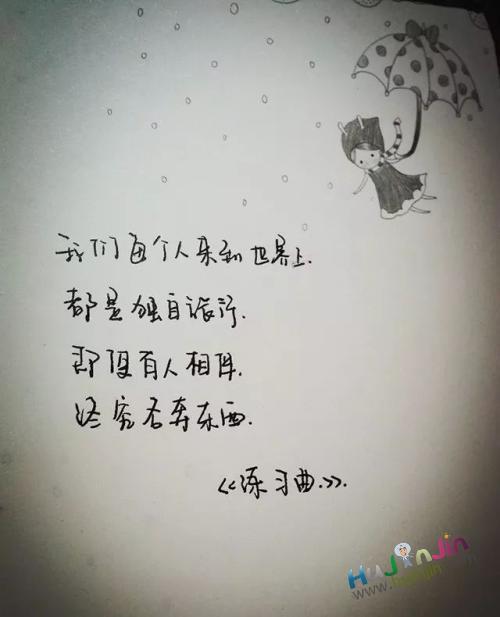 我们每个人来到世界上.
都是独自旅行.
即使有人相伴.
终究各奔东西.
《练习曲.》.
HuJinJin
www.hujinjin.com